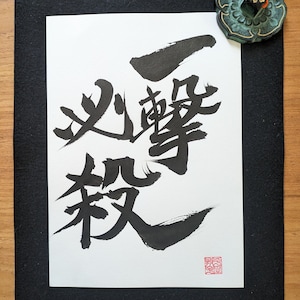 一撃
必殺